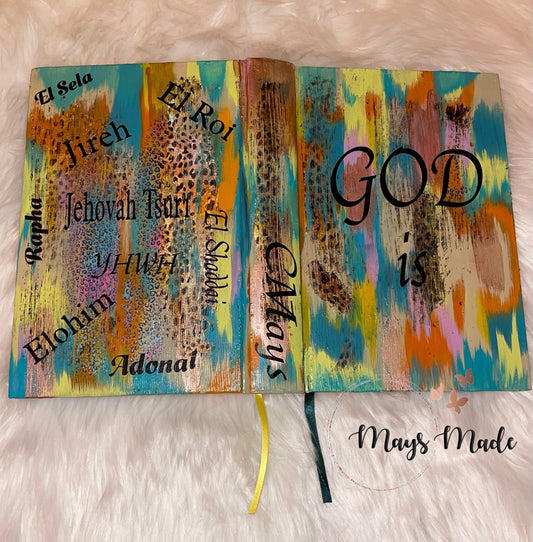 El Sela
Jireh
El Roi
Rapha
Jehovah Tsuri
El Shaddai
YHWH
Elohim
Adonai
CMays
GOD
is
Mays Made